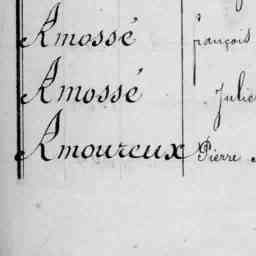 Amossé françois
Amossé Julie
Amoureux Pierre